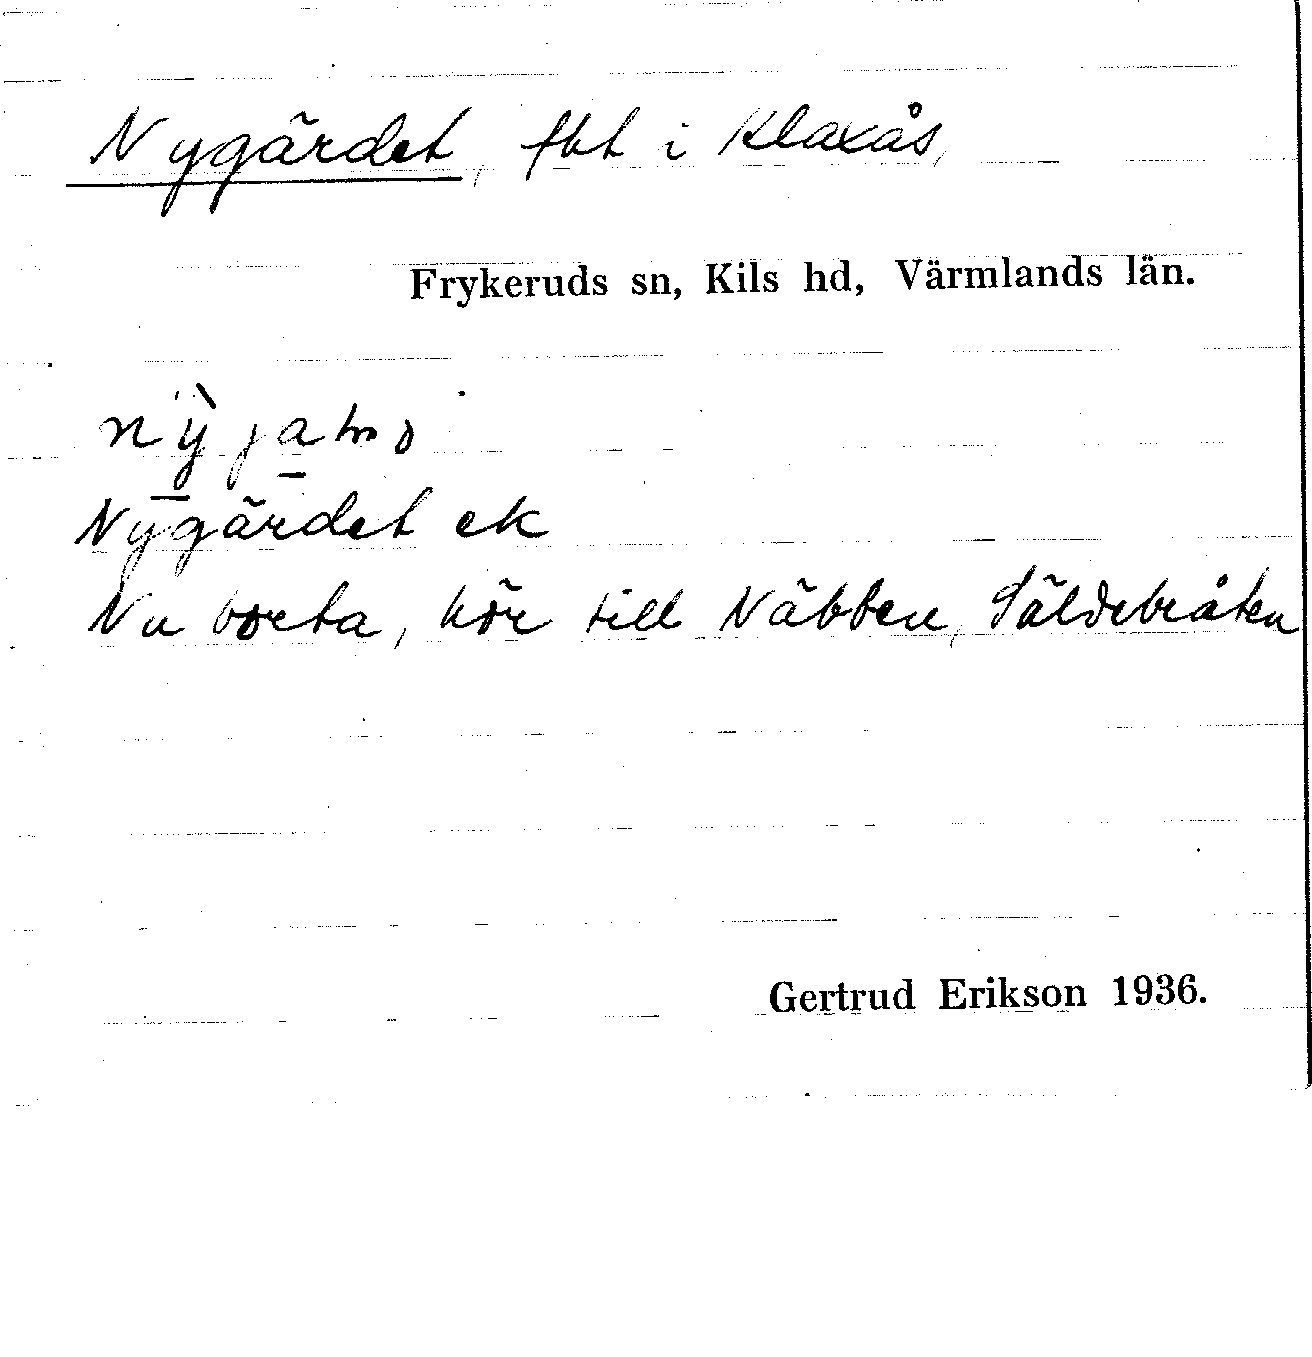 Nygärdet, fbt i Klaxås,
Frykeruds sn, Kils hd, Värmlands län.
Nygärdet ek
Nu borta, hör till Näbben, Säldebråten
Gertrud Erikson 1936.